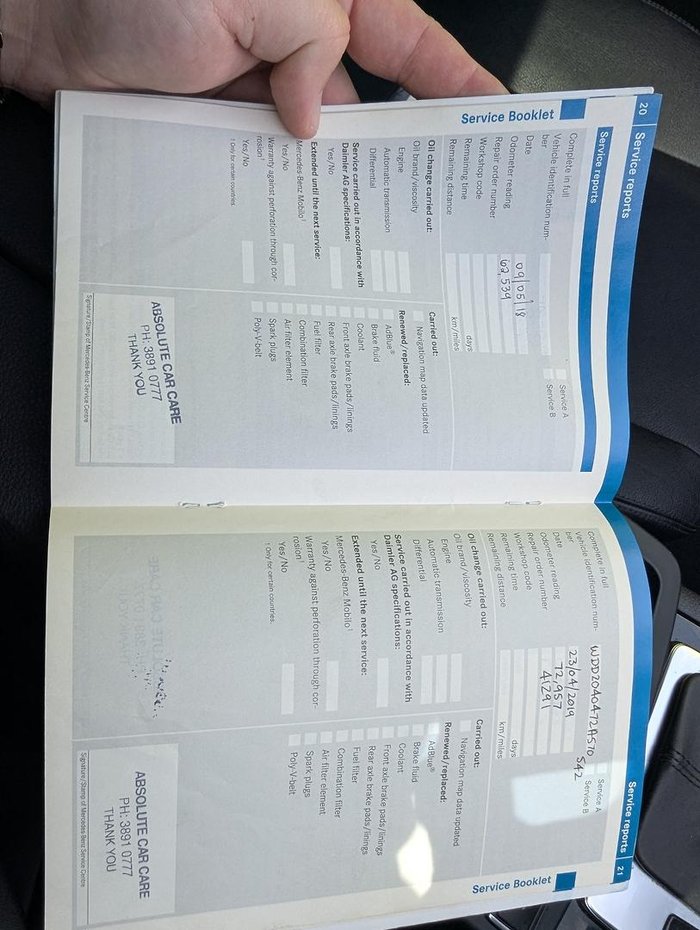 20 Service reports
Service reports
Complete in full
Vehicle identification num-
ber
Date 09/05/18
Odometer reading 62,539
Repair order number
Workshop code
Remaining time days
Remaining distance km/miles
Service A
Service B
Oil change carried out:
Oil brand/viscosity
Engine
Automatic transmission
Differential
Service carried out in accordance with
Daimler AG specifications:
Yes/No
Extended until the next service:
Mercedes-Benz Mobilo¹
Yes/No
Warranty against perforation through cor-
rosion¹
Yes/No
¹ Only for certain countries.
Carried out:
Navigation map data updated
Renewed/replaced:
AdBlue®
Brake fluid
Coolant
Front axle brake pads/linings
Rear axle brake pads/linings
Fuel filter
Combination filter
Air filter element
Spark plugs
Poly-V-belt
ABSOLUTE CAR CARE
PH: 3891 0777
THANK YOU
Signature/Stamp of Mercedes-Benz Service Centre
Service Booklet
Service reports 21
Complete in full
Vehicle identification num- WDD2040472A570
ber 542
Date 23/04/2019
Odometer reading 72,957
Repair order number 41291
Workshop code
Remaining time days
Remaining distance km/miles
Service A
Service B
Oil change carried out:
Oil brand/viscosity
Engine
Automatic transmission
Differential
Service carried out in accordance with
Daimler AG specifications:
Yes/No
Extended until the next service:
Mercedes-Benz Mobilo¹
Yes/No
Warranty against perforation through cor-
rosion¹
Yes/No
¹ Only for certain countries.
Carried out:
Navigation map data updated
Renewed/replaced:
AdBlue®
Brake fluid
Coolant
Front axle brake pads/linings
Rear axle brake pads/linings
Fuel filter
Combination filter
Air filter element
Spark plugs
Poly-V-belt
ABSOLUTE CAR CARE
PH: 3891 0777
THANK YOU
Signature/Stamp of Mercedes-Benz Service Centre
Service Booklet